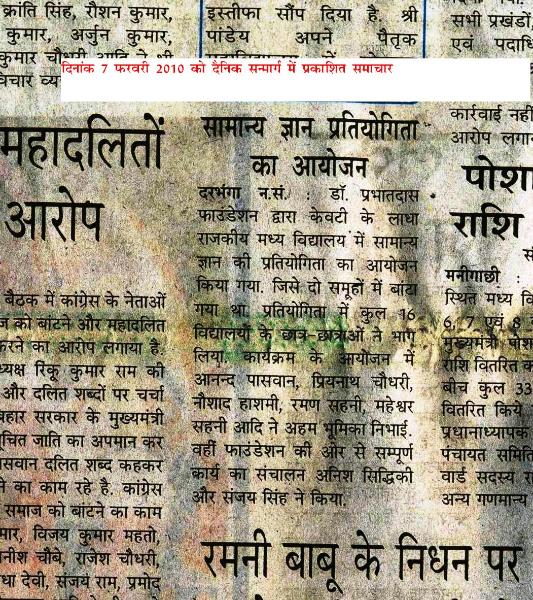 क्रांति सिंह, रौशन कुमार,
कुमार, अर्जुन कुमार,
कुमार चौधरी आदि ने भी
विचार व्य
इस्तीफा सौंप दिया है. श्री
पांडेय अपने पैतृक
सभी प्रखंडों
एवं पदाधि
दिनांक 7 फरवरी 2010 को दैनिक सन्मार्ग में प्रकाशित समाचार
महादलितों
आरोप
बैठक में कांग्रेस के नेताओं
ज को बांटने और महादलित
करने का आरोप लगाया है.
ध्यक्ष रिंकू कुमार राम की
और दलित शब्दों पर चर्चा
बिहार सरकार के मुख्यमंत्री
चित जाति का अपमान कर
पासवान दलित शब्द कहकर
ने का काम रहे है. कांग्रेस
समाज को बांटने का काम
मार, विजय कुमार महतो,
नीश चौबे, राजेश चौधरी,
धा देवी, संजय राम, प्रमोद
सामान्य ज्ञान प्रतियोगिता
का आयोजन
दरभंगा न.सं. : डॉ. प्रभातदास
फाउंडेशन द्वारा केवटी के लाधा
राजकीय मध्य विद्यालय में सामान्य
ज्ञान की प्रतियोगिता का आयोजन
किया गया. जिसे दो समूहों में बांटा
गया था. प्रतियोगिता में कुल 16
विद्यालयों के छात्र-छात्राओं ने भाग
लिया. कार्यक्रम के आयोजन में
आनन्द पासवान, प्रियनाथ चौधरी,
नौशाद हाशमी, रमण सहनी, महेश्वर
सहनी आदि ने अहम भूमिका निभाई.
वहीं फाउंडेशन की ओर से सम्पूर्ण
कार्य का संचालन अनिश सिद्धिकी
और संजय सिंह ने किया.
रमनी बाबू के निधन पर
कार्रवाई नहीं
आरोप लगान
पोशा
राशि
मनीगाछी :
स्थित मध्य वि
6, 7 एवं 8
मुख्यमंत्री पोश
राशि वितरित क
बीच कुल 33
वितरित किये
प्रधानाध्यापक
पंचायत समिति
वार्ड सदस्य रा
अन्य गणमान्य